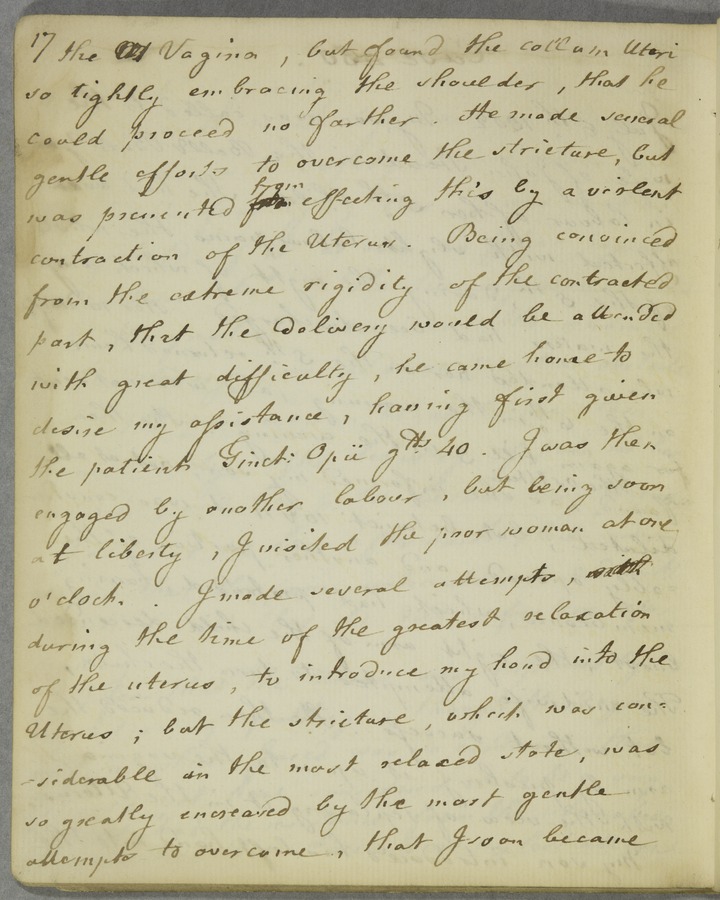 17 the Vagina, but found the collum Uteri
so tightly embracing the shoulder, that he
could proceed no farther. He made several
gentle efforts to overcome the stricture, but
was prevented from effecting this by a violent
contraction of the Uterus. Being convinced
from the extreme rigidity of the contracted
part, that the delivery would be attended
with great difficulty, he came home to
desire my assistance, having first given
the patient Tinct: Opii gtts 40. I was then
engaged by another labour, but being soon
at liberty, I visited the poor woman at one
o'clock. I made several attempts,
during the time of the greatest relaxation
of the uterus, to introduce my hand into the
Uterus; but the stricture, which was con=
-siderable in the most relaxed state, was
so greatly encreased by the most gentle
attempts to overcome, that I soon became